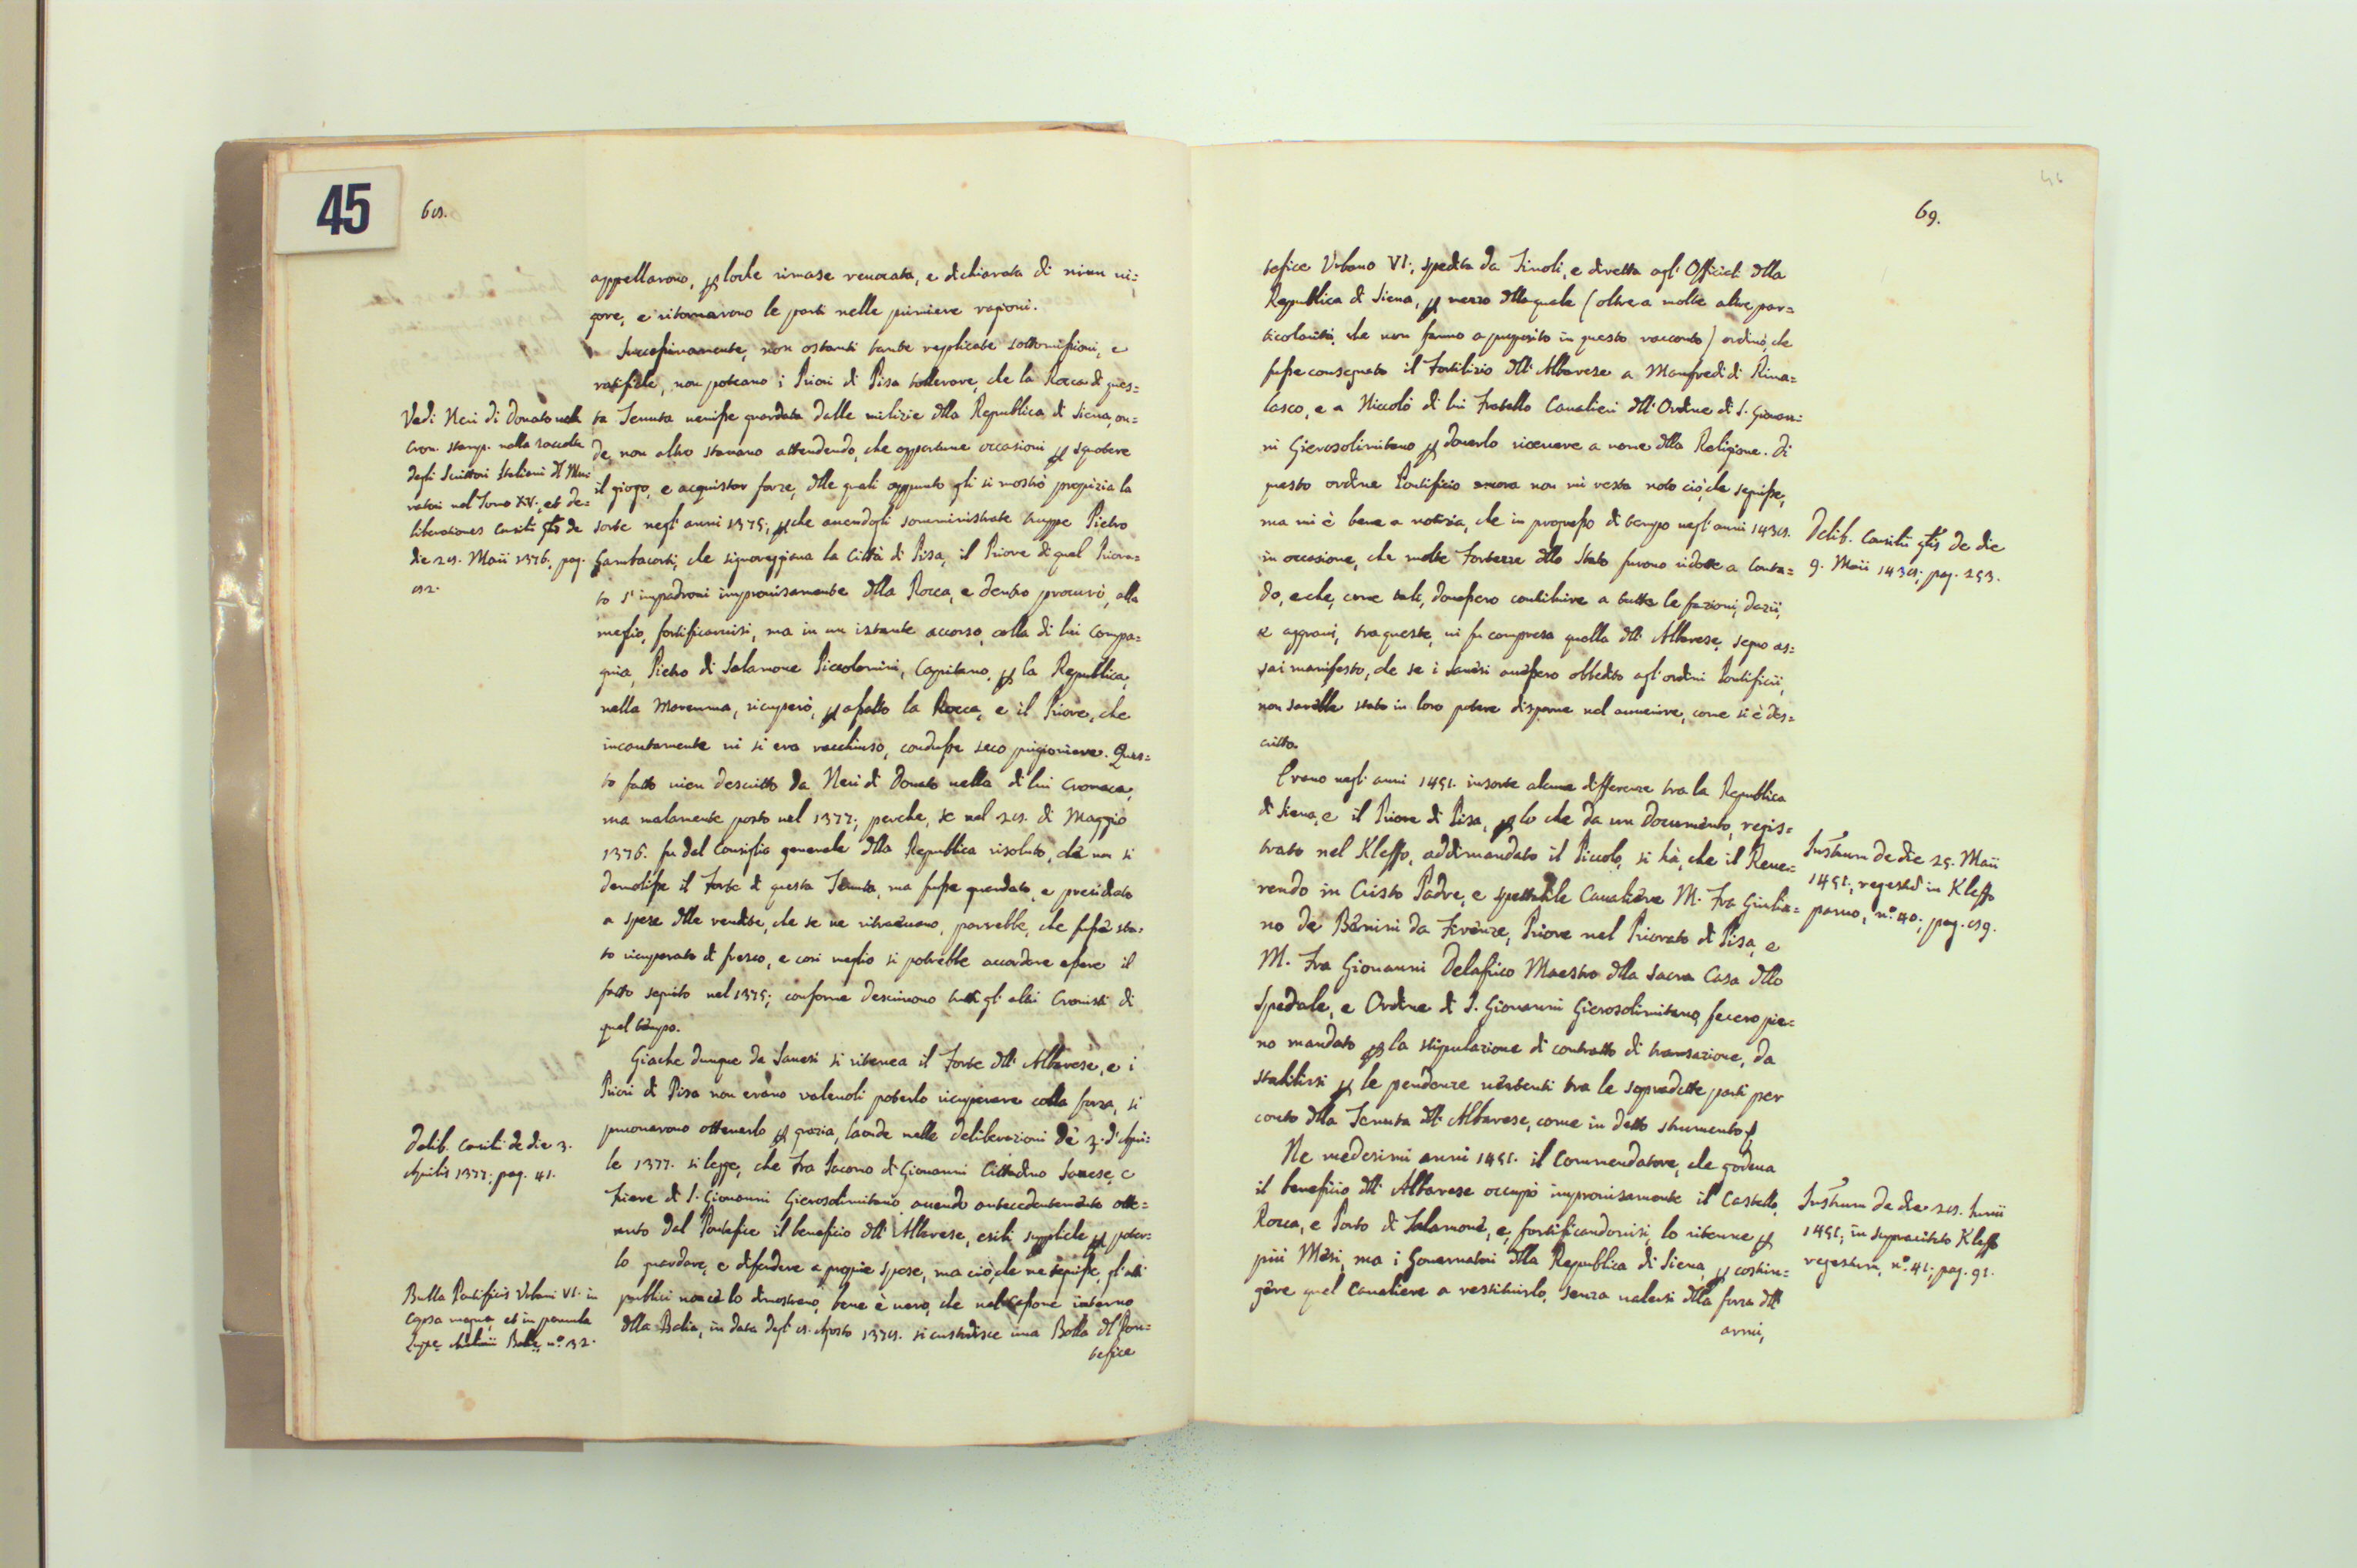 45
68.
appellarono, p loche rimase reuocata, e dichiarata di niun ui=
gore, e ritornarono le parti nelle primiere ragioni.
Successiuamente, non ostanti tante replicate sottomissioni, e
ratifiche, non poteano i Priori di Pisa tollerare, che la Rocca di ques=
ta Tenuta uenisse guardata dalle milizie dlla Republica di Siena, on=
de non altro stauano attendendo, che opportune occasioni p scuotere
il giogo, e acquistar forze, dlle quali appunto gli si mostrò propizia la
sorte negl' anni 1375; p che auendogli somministrate truppe Pietro
Gambacorti, che signoreggiaua la Città di Pisa, il Priore di quel Priora=
to s' impadronì improuisamente dlla Rocca, e dentro procurò, alla
meglio, fortificaruisi, ma in un istante accorso, colla di lui Compa=
gnia, Pietro di Salamone Piccolomini, Capitano, p la Republica,
nella Maremma, ricuperò, p assalto la Rocca, e il Priore, che
incautamente ui si era racchiuso, condusse seco prigioniere. Ques=
to fatto uien descritto da Neri di Donato nella di lui Cronaca,
ma malamente posto nel 1377; perche, se nel 28. di Maggio
1376. fu dal Consiglio generale dlla Republica risoluto, che non si
demolisse il Forte di questa Tenuta, ma fusse guardato, e presidiato
a spese dlle rendite, che se ne ritraeuano, parrebbe, che fusse sta=
to ricuperato di fresco, e così meglio si potrebbe accordare essere il
fatto seguito nel 1375; conforme descriuono tutti gl' altri Cronisti di
quel tempo.
Giache dunque da Sanesi si ritenea il Forte dll' Alberese, e i
Priori di Pisa non erano valeuoli poterlo ricuperare colla forza, si
prouarono ottenerlo p grazia, laonde nelle deliberazioni dè 3. d' Apri=
le 1377. si legge, che Fra Jacomo di Giouanni Cittadino Sanese, e
Friere di S. Giouanni Gierosolimitano, auendo antecedentemente otte=
nuto dal Pontefice il beneficio dll' Alberese, esibì suppliche p poter=
lo guardare, e difendere a proprie spese, ma ciò, che ne seguisse, gl' atti
publici non ce lo dimostrano, bene è uero, che nel Cassone interno
dlla Balia, in data degl' 8. Agosto 1378. si custodisce una Bolla dl Pon=
tefice
Vedi Neri di Donato nella
Cron. stamp. nella raccolta
degli Scrittori Italiani dl Mu=
ratori nel Tomo XV. et de=
liberationes Consilii gnlis de
die 28. Maii 1376. pag.
82.
Delib. Consilii de die 3.
Aprilis 1377: pag. 41.
Bulla Pontificis Urbani VI. in
Capsa magna, et in pannula
n.o 32.
69.
tefice Urbano VI., spedita da Tiuoli, e diretta agl' Officiali dlla
Republica di Siena, p mezzo dlla quale (oltre a molte altre par=
ticolarità, che non fanno a proposito in questo racconto) ordinò, che
fusse consegnato il Fortilizio dll' Alberese a Manfredi di Rina=
lasco, e a Niccolò di lui Fratello Caualieri dll' Ordine di S. Giouan=
ni Gierosolimitano p douerlo riceuere a nome dlla Religione. Di
questo ordine Pontificio ancora non mi resta noto ciò, che seguisse,
ma mi è bene a notizia, che in progresso di tempo negl' anni 1438.
in occasione, che molte Fortezze dllo Stato furono ridotte a Conta=
do, e che, come tali, douessero contribuire a tutte le fazioni, dazii,
e aggraui, tra queste, ui fu compresa quella dll' Alberese, segno as=
sai manifesto, che se i Sanesi auessero obbedito agl' ordini Pontificii,
non sarebbe stato in loro potere disporne nel auuenire, come si è des=
critto.
Erano negl' anni 1451. insorte alcune differenze tra la Republica
di Siena, e il Priore di Pisa, p lo che da un Documento, regis=
trato nel Kleffo, addimandato il Piccolo, si hà, che il Reue=
rendo in Cristo Padre, e spettabile Caualiere M. Fra Giulia=
no de Benini da Firenze, Priore nel Priorato di Pisa, e
M. Fra Giouanni Delastico Maestro dlla Sacra Casa dllo
Spedale, e Ordine di S. Giouanni Gierosolimitano, fecero pie=
no mandato p la stipulazione di contratto di transazione, da
stabilirsi p le pendenze uertenti tra le sopradette parti per
conto dlla Tenuta dll' Alberese, come in detto strumento.
Ne medesimi anni 1451. il Commendatore, che godeua
il beneficio dll' Alberese occupò improuisamente il Castello,
Rocca, e Porto di Talamone, e, fortificandouisi, lo ritenne p
più Mesi, ma i Gouernatori dlla Republica di Siena, p costrin=
gere quel Caualiere a restituirlo, senza ualersi dlla forza dll'
armi,
Delib. Consilii gnlis de die
9. Maii 1438; pag. 253.
Instrum de die 25. Maii
1451; regestrd in Kleffo
paruo, n.o 40; pag. 89.
Instrum de die 28. Iunii
1451; in supracitato Kleffo
regestrum, n.o 41; pag. 91.